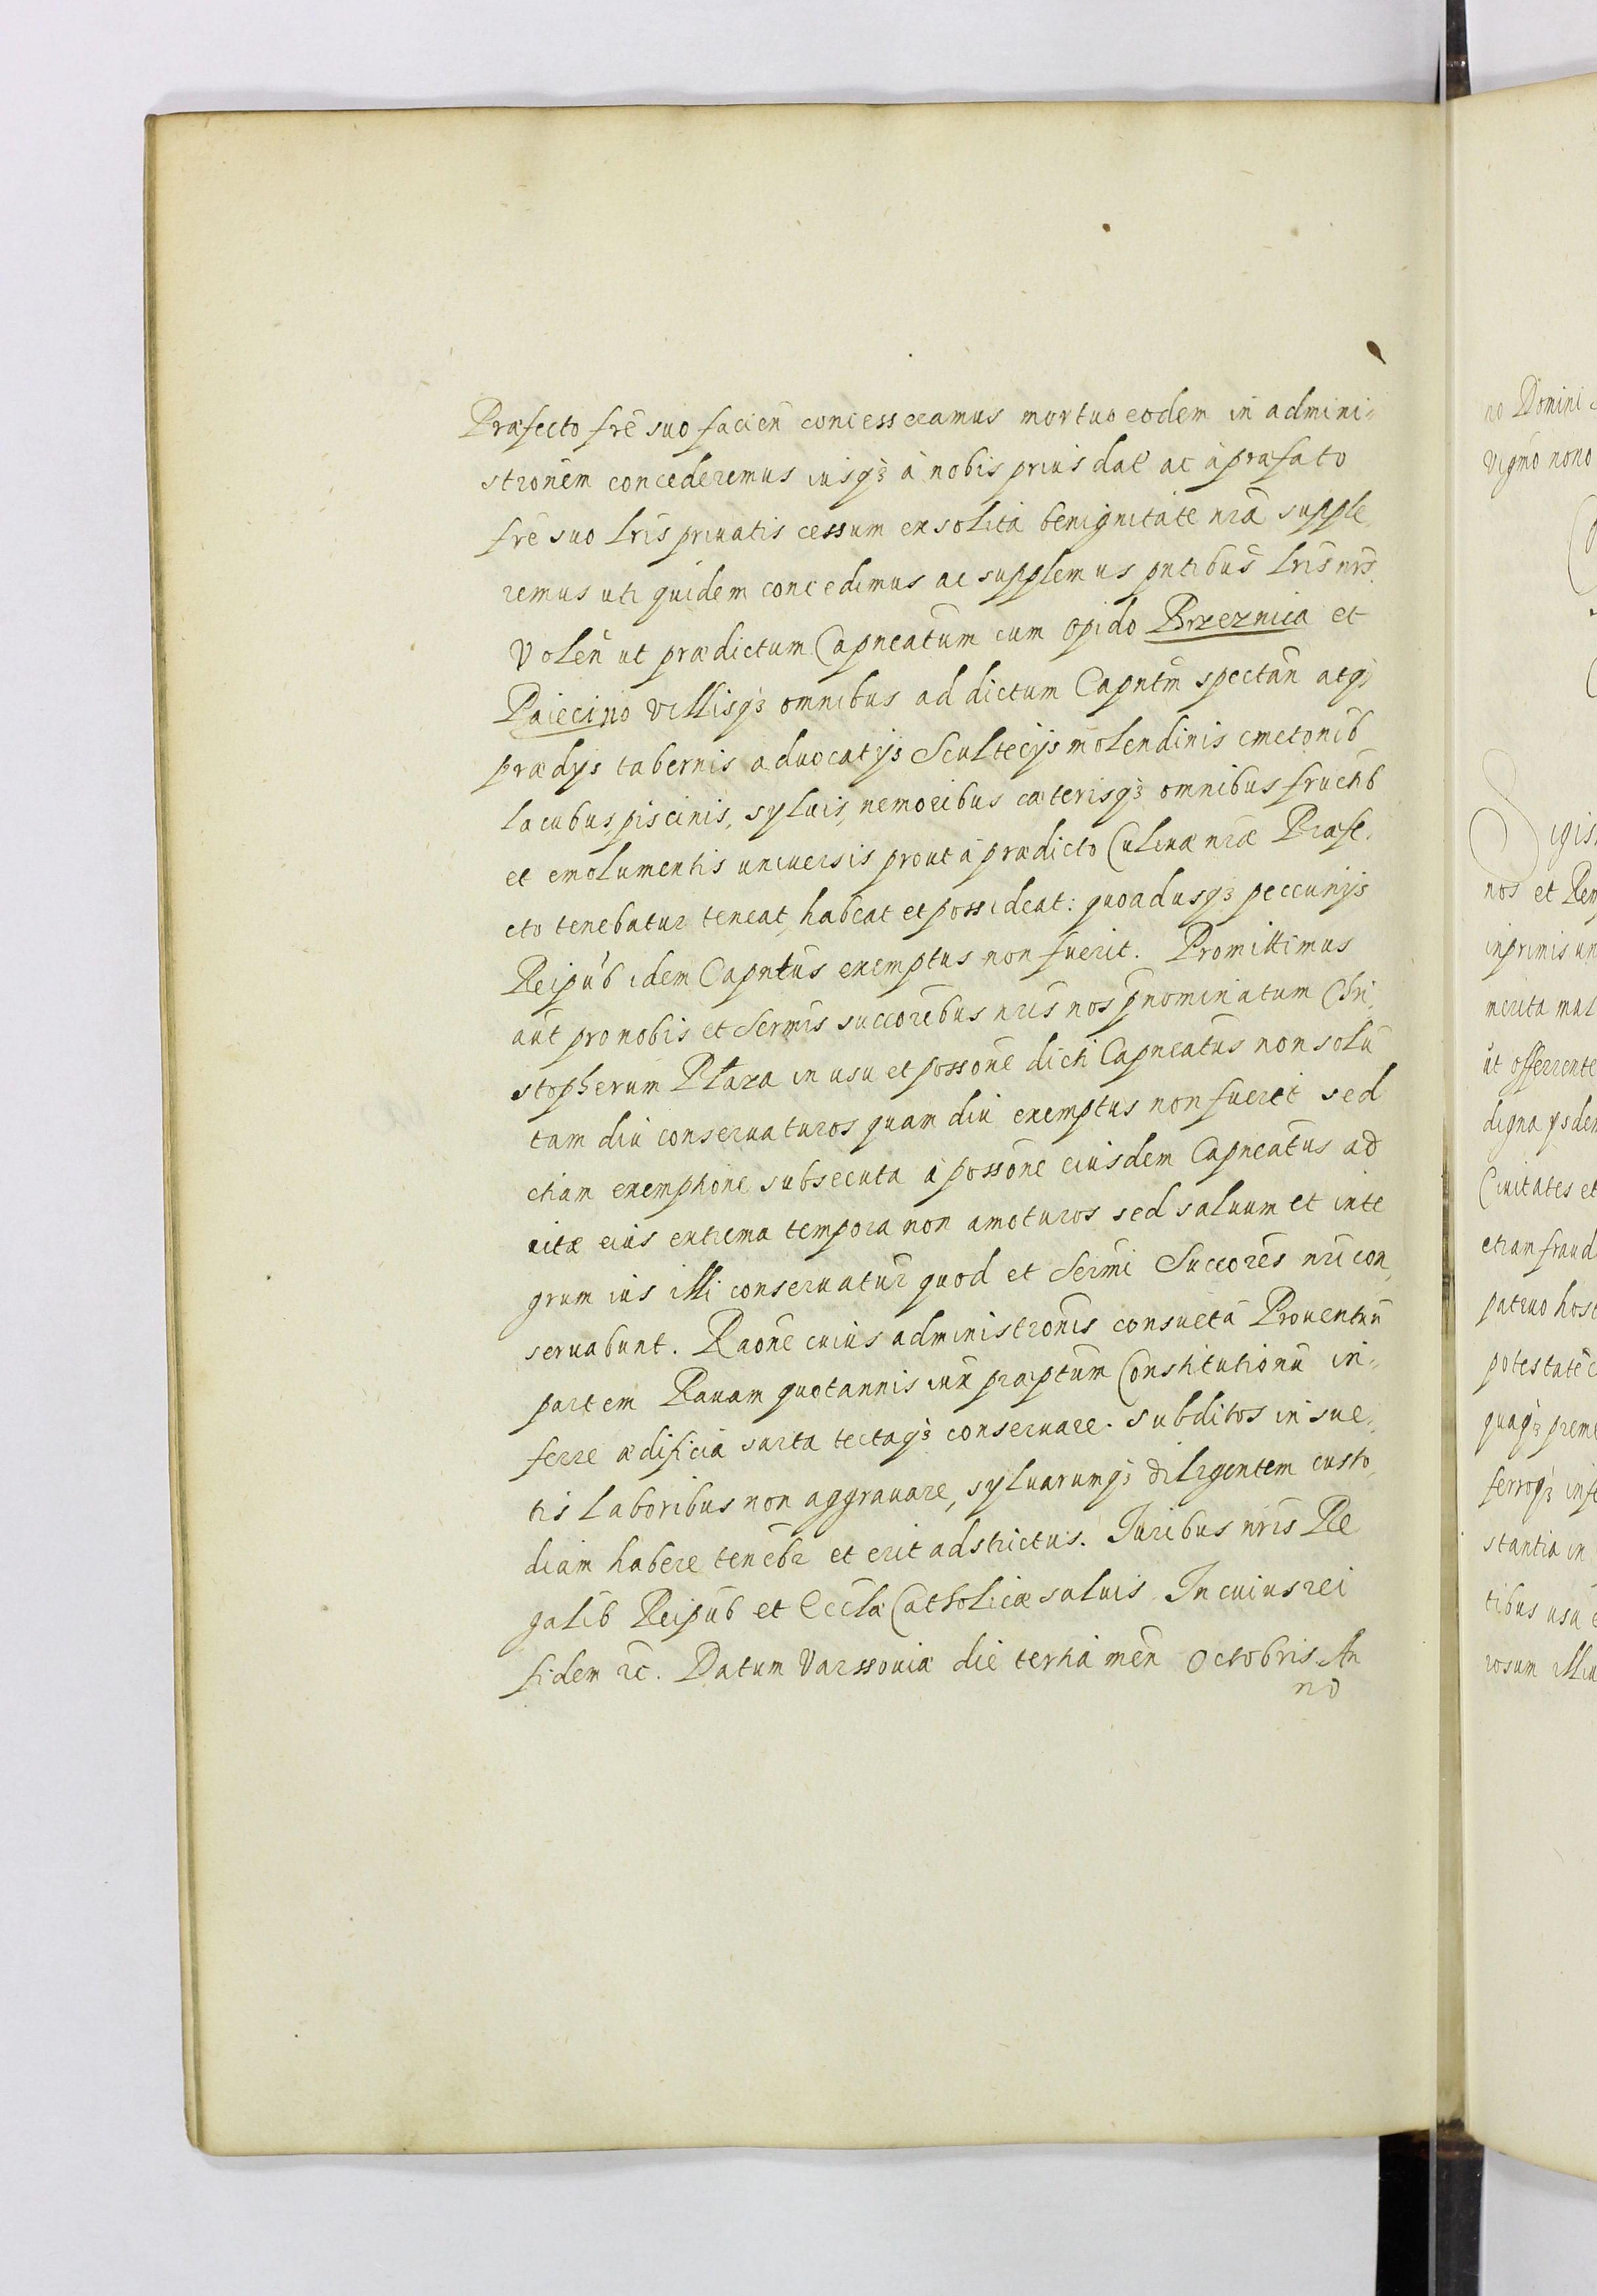 Præfecto frē suo facien̄ concesseramus mortuo eodem in admini=
stronem concederemus iusq3 à nobis prius dat̄ ac à præfato
frē suo lr̄is priuatis cessum ex solita benignitate nr̄a supple,
remus uti quidem concedimus ac supplemus pn̄tibus lr̄is nr̄s.
Volen̄ ut prædictum Capneatum cum opido Brzeznica et
Paiecino villisq3 omnibus ad dictum Capnt̄m spectan̄ atq3
prædijs tabernis aduocatijs Scultecijs molendinis cmetonib
lacubus piscinis, syluis, nemoribus cæterisq3 omnibus fructib
et emolumentis uniuersis prout à prædicto Culinæ nr̄æ Præfe,
cto tenebatur teneat, habeat et possideat: quoadusq3 peccunijs
Reipub̄ idem Capnt̄us exemptus non fuerit. Promittimus
aut̄ pro nobis et Serm̄is succoribus nr̄is nos p̄nominatum Chri,
stopherum Płaza in usu et possone dicti Capneatus non solū
tam diu conseruaturos quam diu exemptus non fuerit sed
etiam exemptione subsecuta à possone eiusdem Capneatus ad
uitæ eius extrema tempora non amoturos sed saluum et inte
grum ius illi conseruatur̄ quod et Serm̄i Succores nr̄i con,
seruabunt. Raōne cuius administronis consueta Prouentuū
partem Rauam quotannis iux̄ præptum Constitutionū in=
ferre ædificia sarta tectaq3 conseruare. subditos in sue,
tis laboribus non aggrauare, syluarumq3 diligentem custo,
diam habere tenebr̄ et erit adstrictus. Juribus nr̄is Re
galib̄ Reipub̄ et Eccl̄æ Catholicæ saluis. In cuius rei
fidem rc. Datum Varssouiæ die tertia men̄ Octobris An
no
no Domini
vigmo nono
Sigis
nos et Rem
inprimis un
merita mal
ut offerrente
digna ijsdem
Ciuitates et
etiam fraud
patruo host
potestatē
quaq3 preme
ferroq3 infe
stantia in
tibus usu
rosum illiu